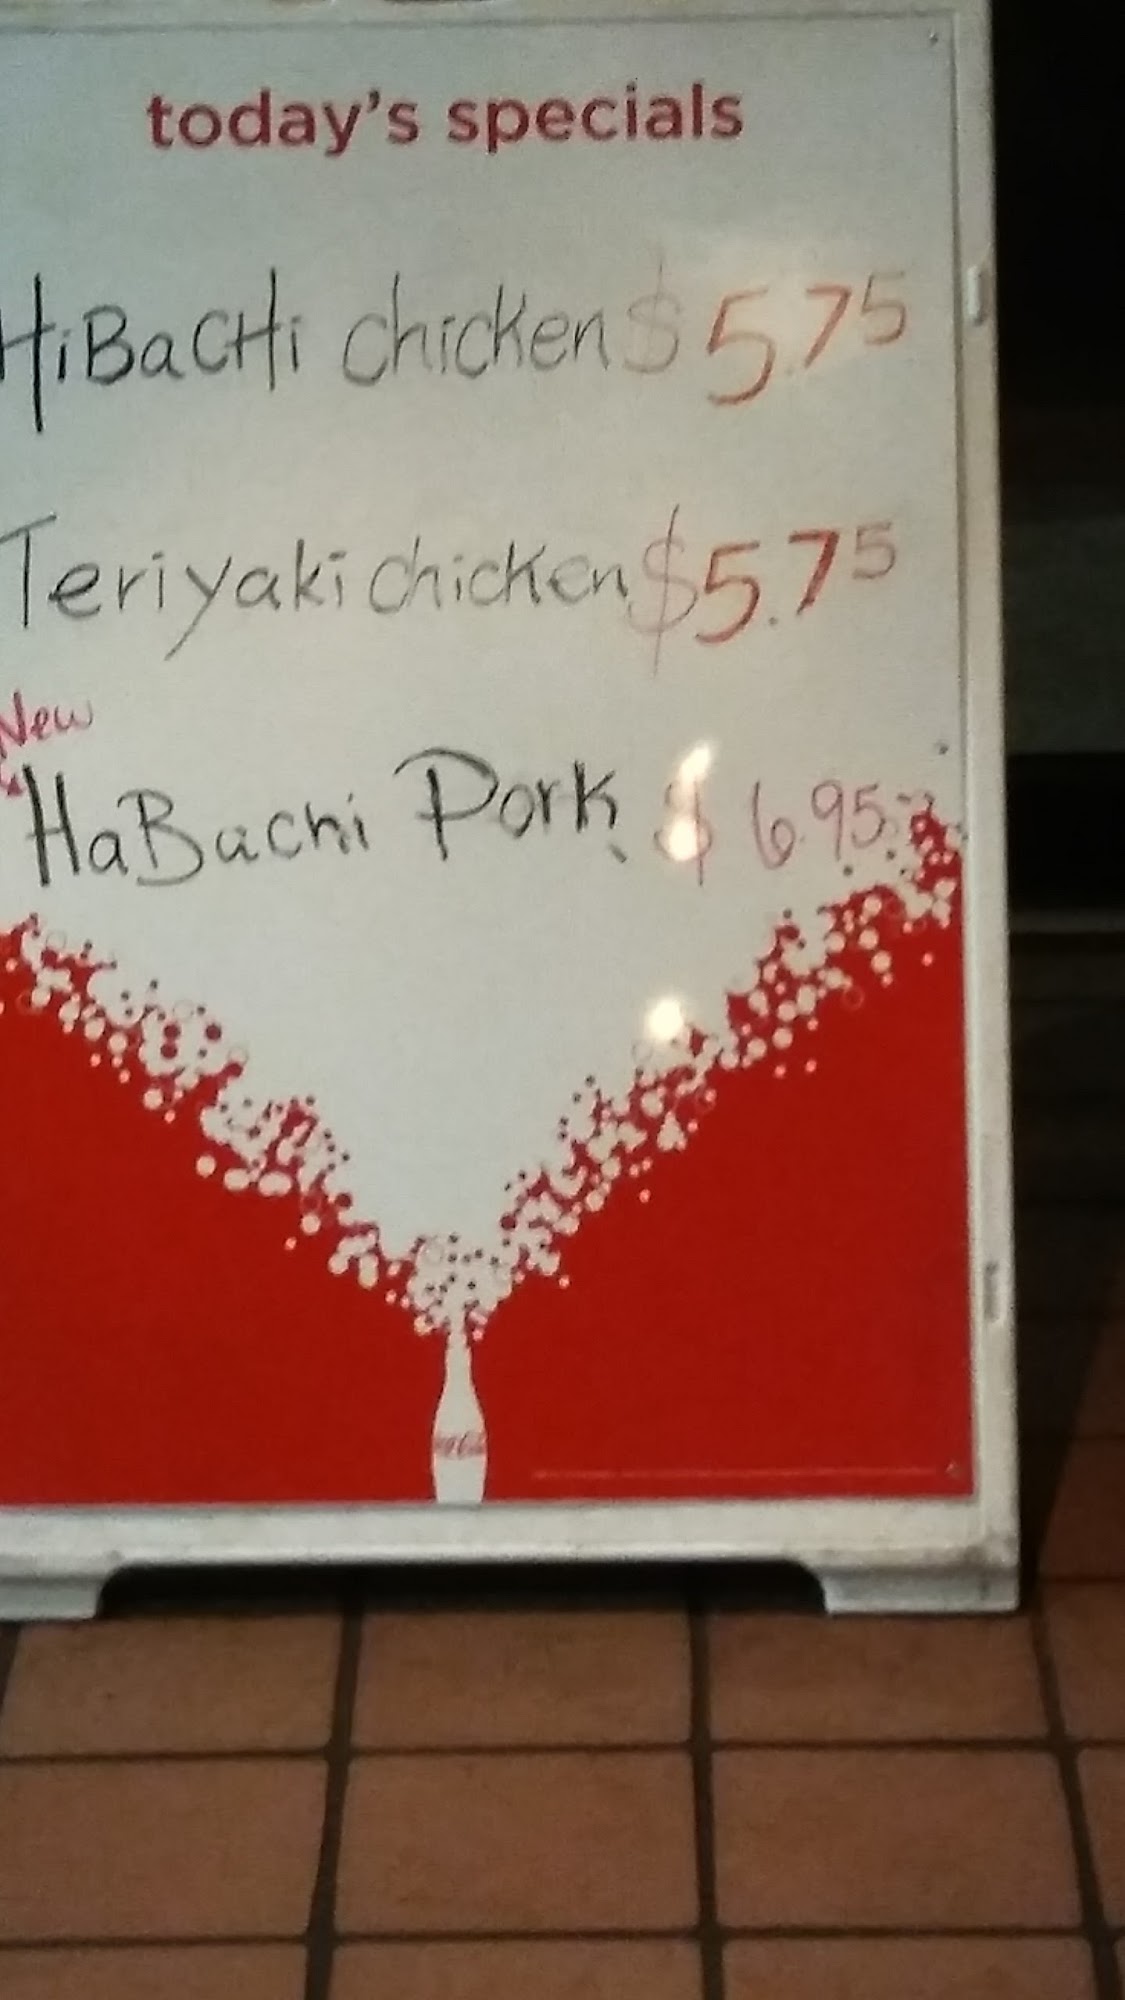 today's specials
HiBaCHi chicken $5.75
Teriyaki chicken $5.75
New
HaBachi Pork $6.95